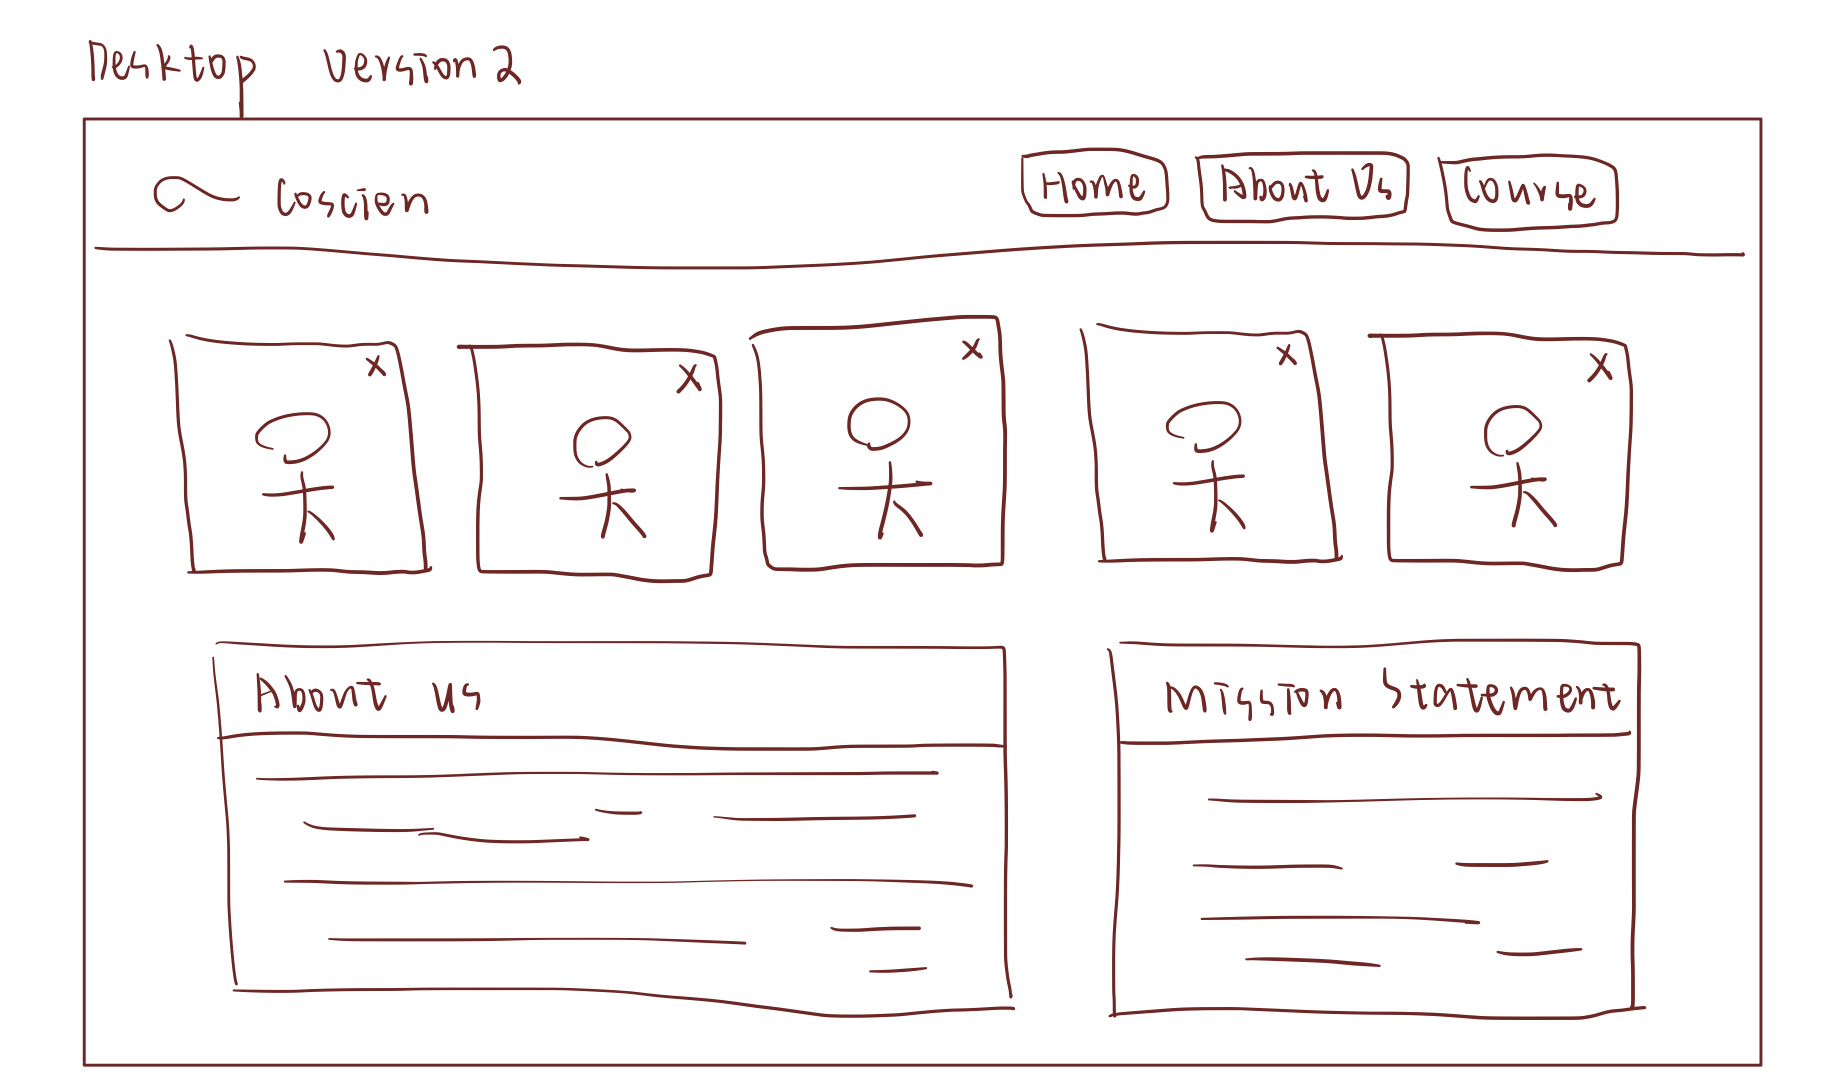 Desktop version 2
Coscien
Home
About Us
Course
x
x
x
x
x
About us
Mission Statement